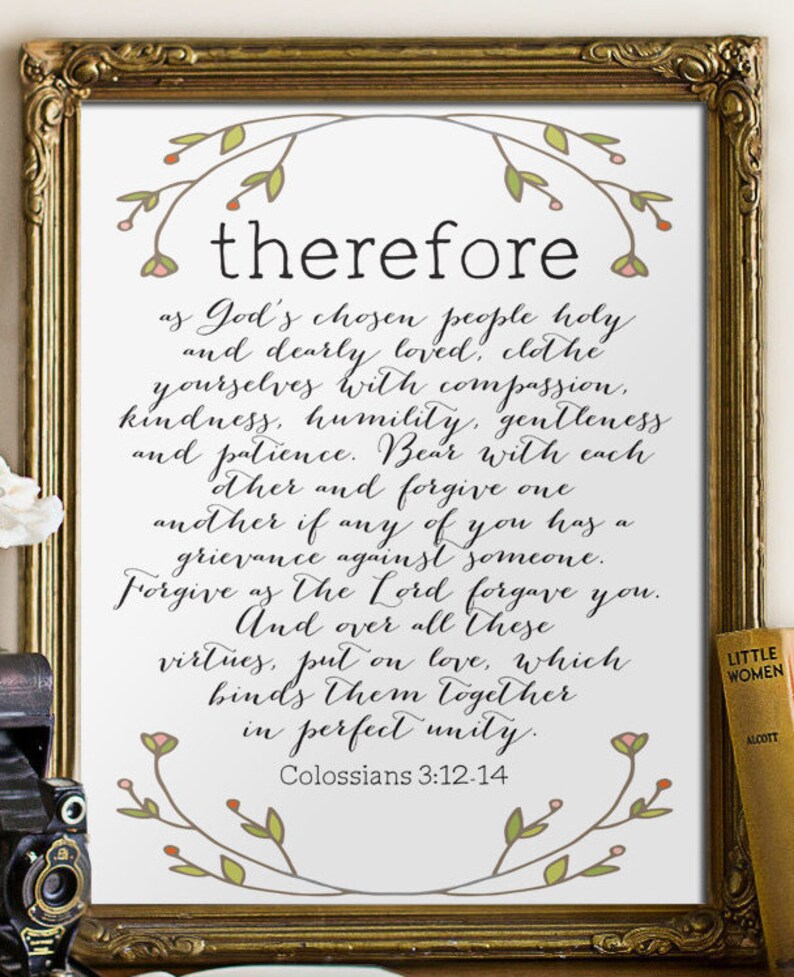 therefore
as God's chosen people holy
and dearly loved, clothe
yourselves with compassion,
kindness, humility, gentleness
and patience. Bear with each
other and forgive one
another if any of you has a
grievance against someone.
Forgive as the Lord forgave you.
And over all these
virtues, put on love, which
binds them together
in perfect unity.
Colossians 3:12-14
LITTLE
WOMEN
ALCOTT